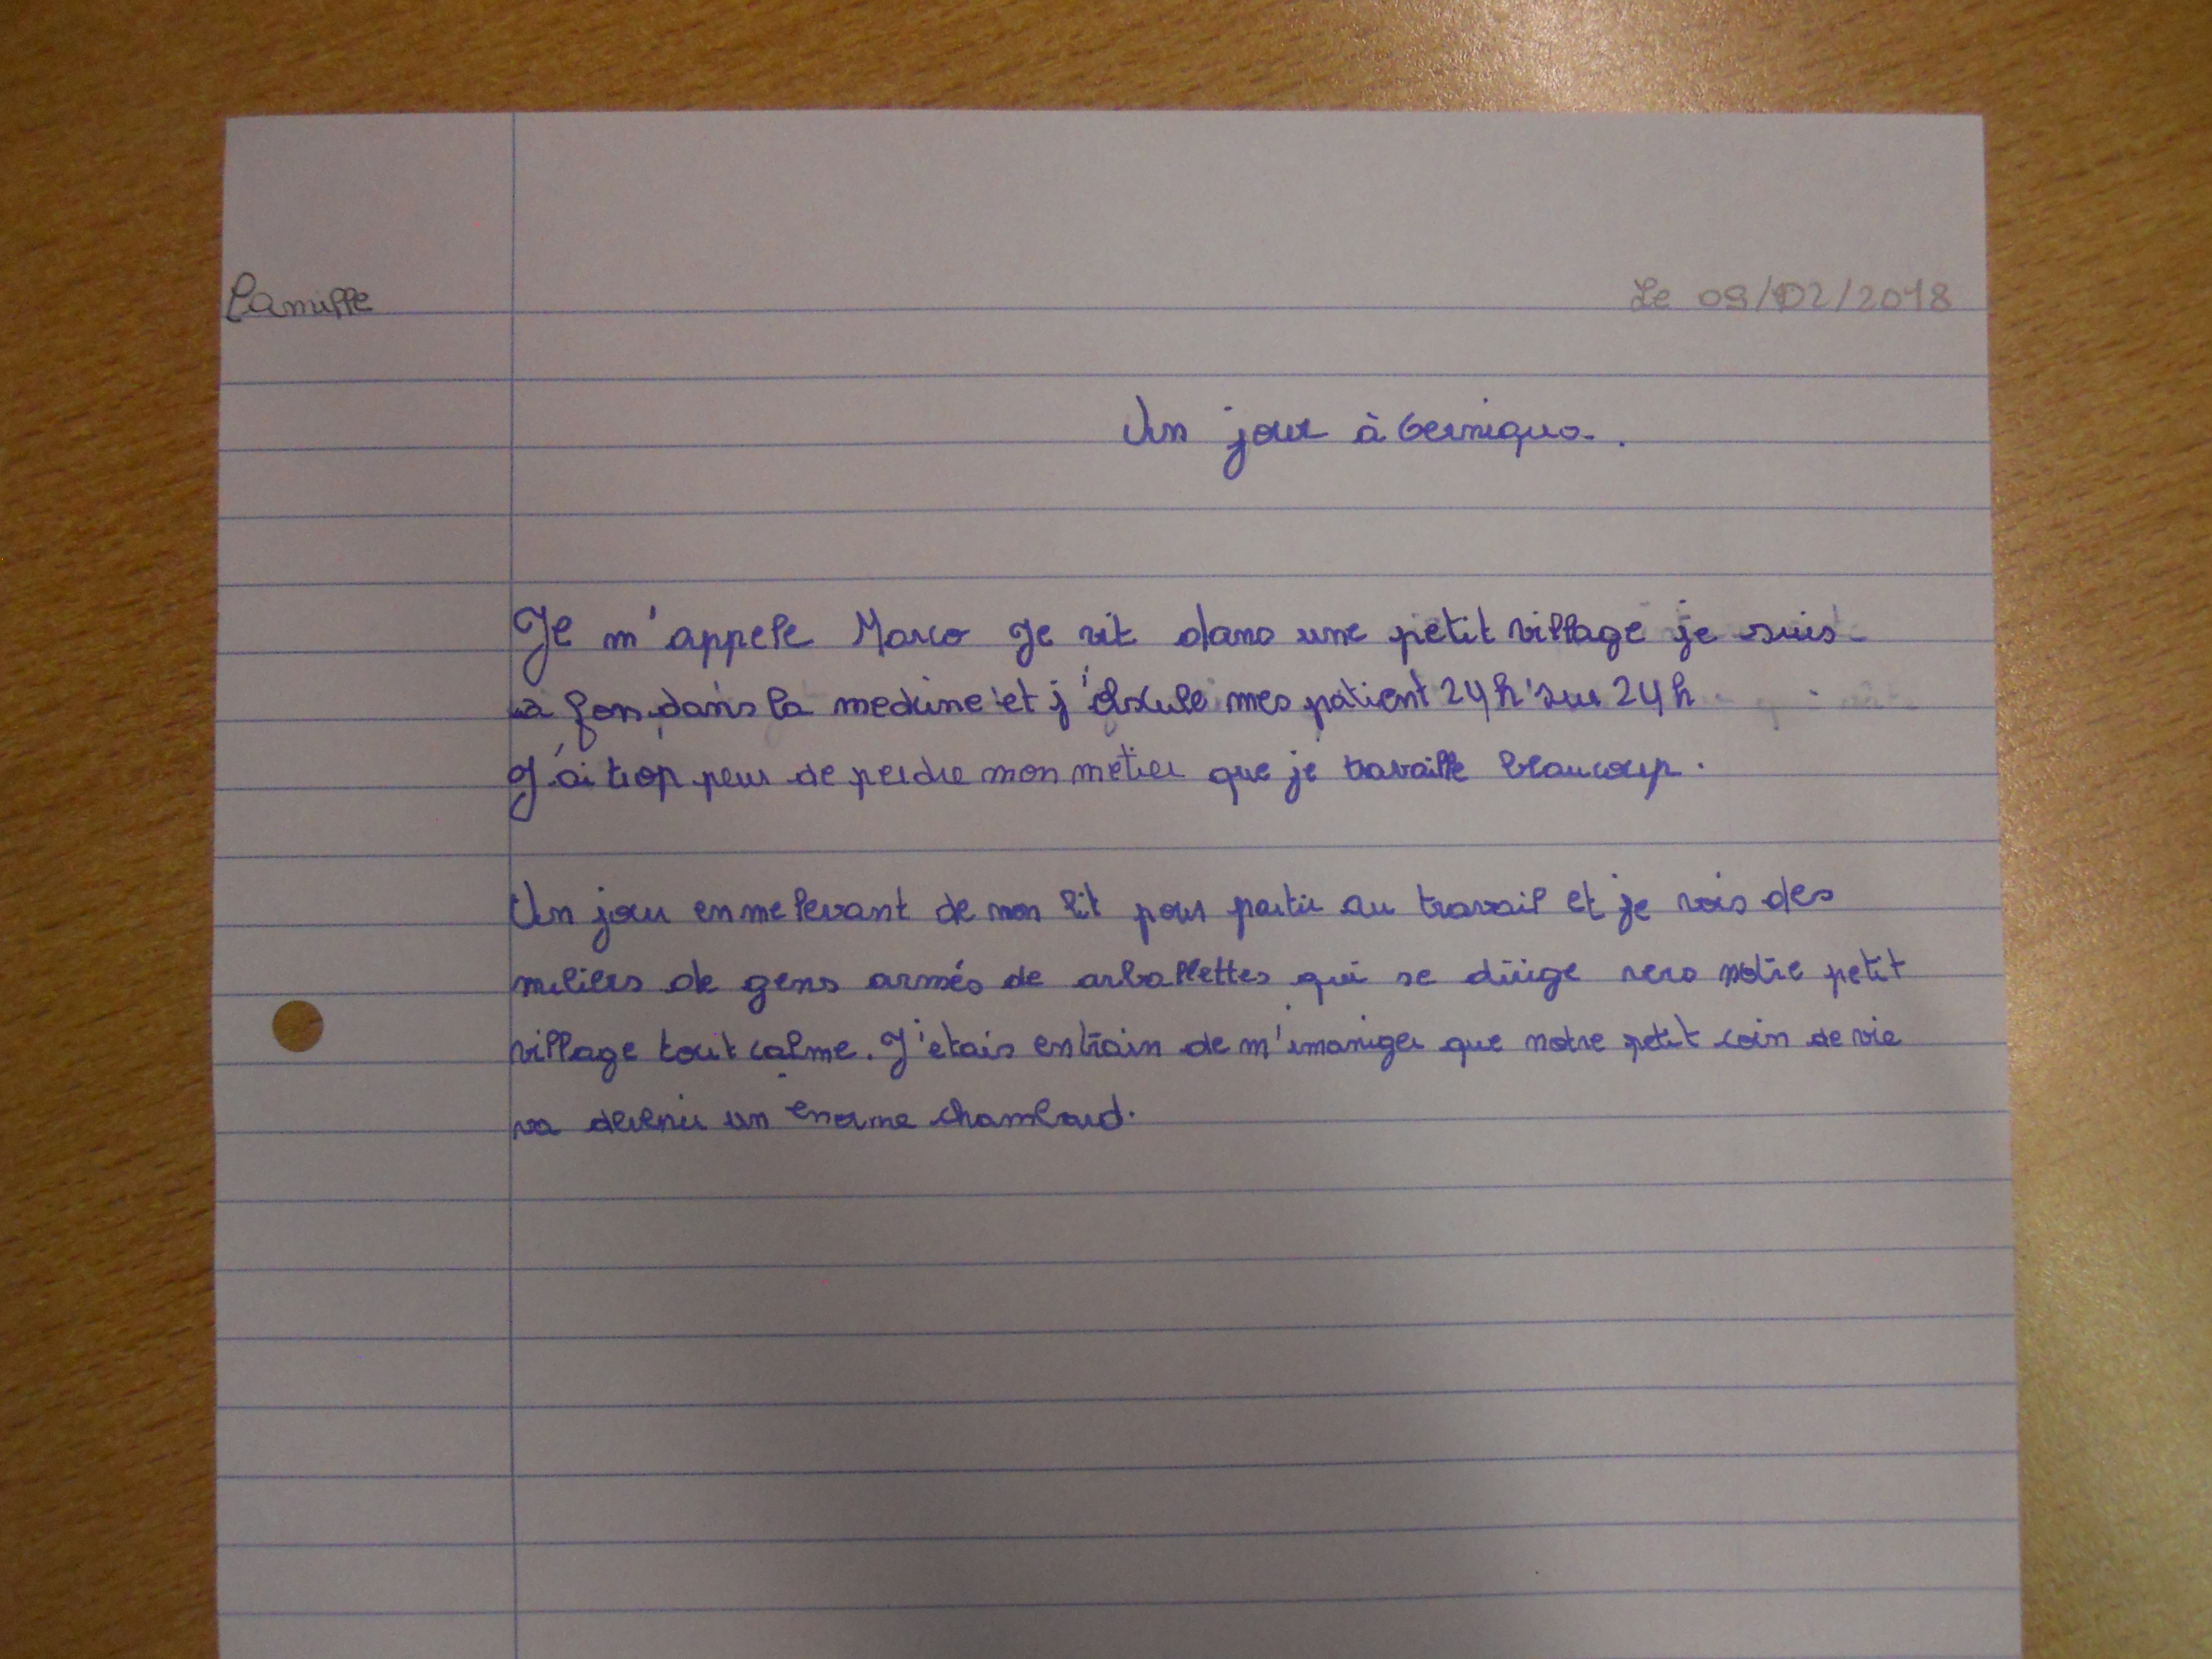 Camille
Le 09/02/2018
Un jour à Gerniqua.
Je m'appele Marco Je vit dans une petit village je suis
à fon dans la medecine et j'oscule mes patient 24h sur 24h
J'ai trop peur de perdre mon métier que je travaille beaucoup.
Un jour en me levant de mon lit pour partir au travail et je vois des
miliers de gens armés de arballettes qui se dirige vers notre petit
village tout calme. J'etais entrain de m'imaniger que notre petit coin de vie
va devenir un enorme chamboud.